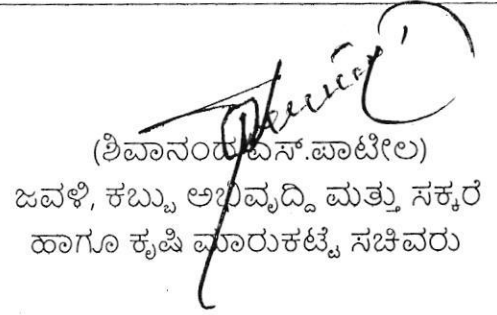 (ಶಿವಾನಂದ ಎಸ್.ಪಾಟೀಲ)
ಜವಳಿ, ಕಬ್ಬು ಅಭಿವೃದ್ಧಿ ಮತ್ತು ಸಕ್ಕರೆ
ಹಾಗೂ ಕೃಷಿ ಮಾರುಕಟ್ಟೆ ಸಚಿವರು